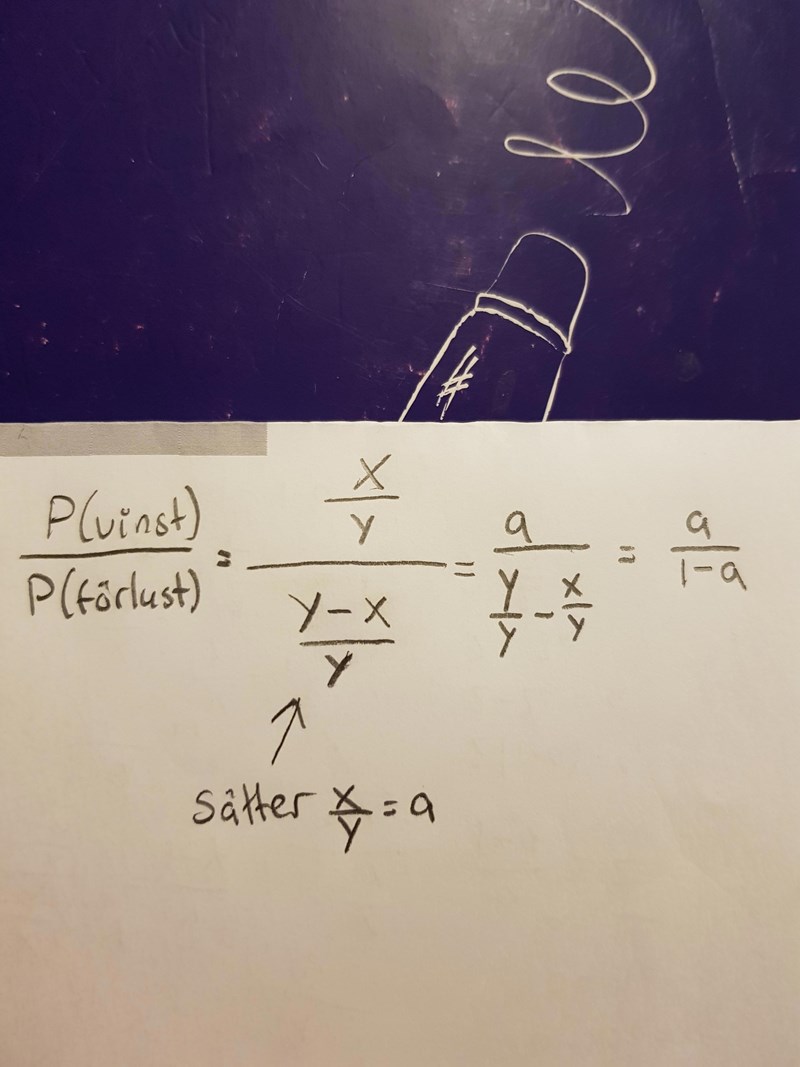 #
P(vinst) / P(förlust) = (x/y) / ((y-x)/y) = a / (y/y - x/y) = a / (1-a)
Sätter x/y = a